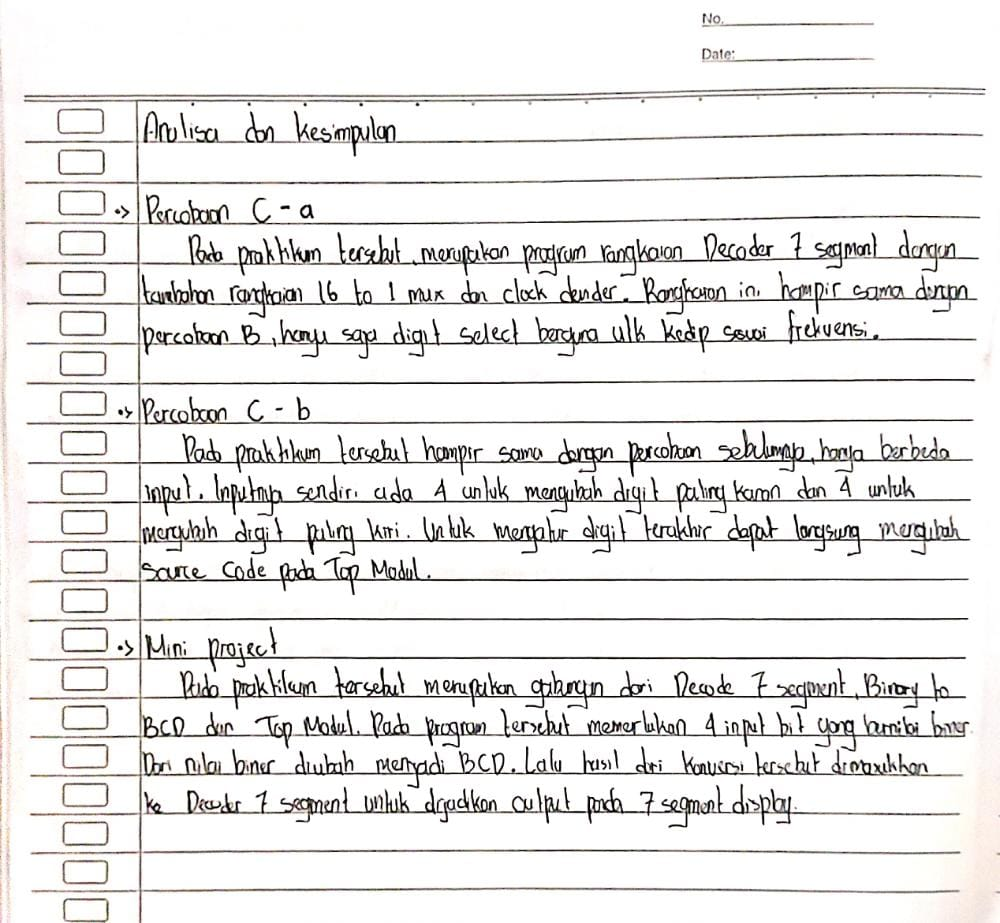 No.
Date:
Analisa dan Kesimpulan
Percobaan C - a
Pada praktikum tersebut merupakan program rangkaian Decoder 7 segment dengan
tambahan rangkaian 16 to 1 mux dan clock devider. Rangkaian ini hampir sama dengan
percobaan B, hanya saja digit select berguna utk kedip sesuai frekuensi.
Percobaan C - b
Pada praktikum tersebut hampir sama dengan percobaan sebelumnya, hanya berbeda
input. Inputnya sendiri ada 4 untuk mengubah digit paling kanan dan 4 untuk
mengubah digit paling kiri. Untuk mengatur digit terakhir dapat langsung mengubah
Source Code pada Top Modul.
Mini project
Pada praktikum tersebut merupakan gabungan dari Decode 7 segment, Binary to
BCD dan Top Modul. Pada program tersebut memerlukan 4 input bit yang bernilai biner.
Dari nilai biner diubah menjadi BCD. Lalu hasil dari konversi tersebut dimasukkan
ke Decoder 7 segment untuk dijadikan output pada 7 segment display.